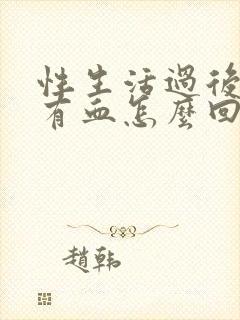 性生活過後
有血怎麼回
趙韩